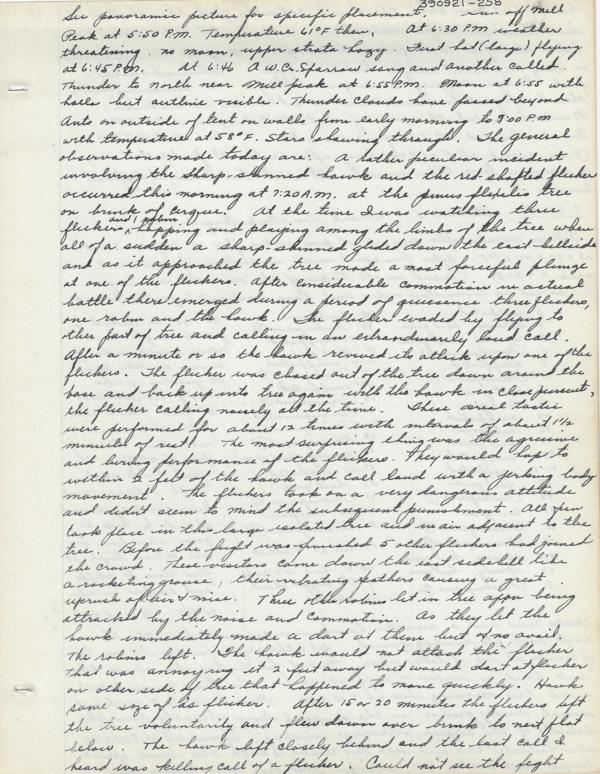 390921-258
See panoramic picture for specific placement. Sun off Mell
Peak at 5:50 P.M. Temperature 61°F then. At 6:30 P.M weather
threatening. no moon, upper strata hazy. First bat (large) flying
at 6:45 P.M. At 6:46 A W.C. Sparrow sang and another called.
Thunder to North near Mell peak at 6:55 P.M. Moon at 6:55 with
halo but outline visible. Thunder clouds have passed beyond
Ants on outside of tent on walls from early morning to 9:00 P.M
with temperature at 58°F. Stars showing through. The general
observations made today are: A rather peculiar incident
involving the sharp-shinned hawk and the red-shafted flicker
occurred this morning at 7:20 A.M. at the pinus flexilis tree
on brink of cirque. At the time I was watching three
flickers, and 1 robin hopping and playing among the limbs of the tree when
all of a sudden a sharp-shinned glided down the east hillside
and as it approached the tree made a most forceful plunge
at one of the flickers. After considerable commotion in actual
battle there emerged during a period of quiesence three flickers,
one robin and the hawk. The flicker evaded by flying to
other part of tree and calling in an extraordinarily loud call.
After a minute or so the hawk revived its attack upon one of the
flickers. The flicker was chased out of the tree down around the
base and back up into tree again with the hawk in close pursuit,
the flicker calling noisely all the time. These aerial tactics
were performed for about 12 times with intervals of about 1½
minutes of rest! The most surprising thing was the agressive
and daring performance of the flickers. They would hop to
within 2 feet of the hawk and call loud with a jerking body
movement. The flickers took on a very dangerous attitude
and didn't seem to mind the subsequent punishment. All fun
took place in this large isolated tree and in air adjacent to the
tree. Before the fight was finished 5 other flickers had joined
the crowd. These visitors came down the east sidehill like
a rocketing grouse; their vibrating feathers causing a great
uprush of air & noise. Three other robins lit in tree upon being
attracked by the noise and commotion. As they lit the
hawk immediately made a dart at them but of no avail.
The robins left. The hawk would not attack the flicker
that was annoying it 2 feet away but would dart at flicker
on other side of tree that happened to move quickly. Hawk
same size of as flicker. After 15 or 20 minutes the flickers left
the tree voluntarily and flew down over brink to next flat
below. The hawk left closely behind and the last call I
heard was killing call of a flicker. Could not see the fight